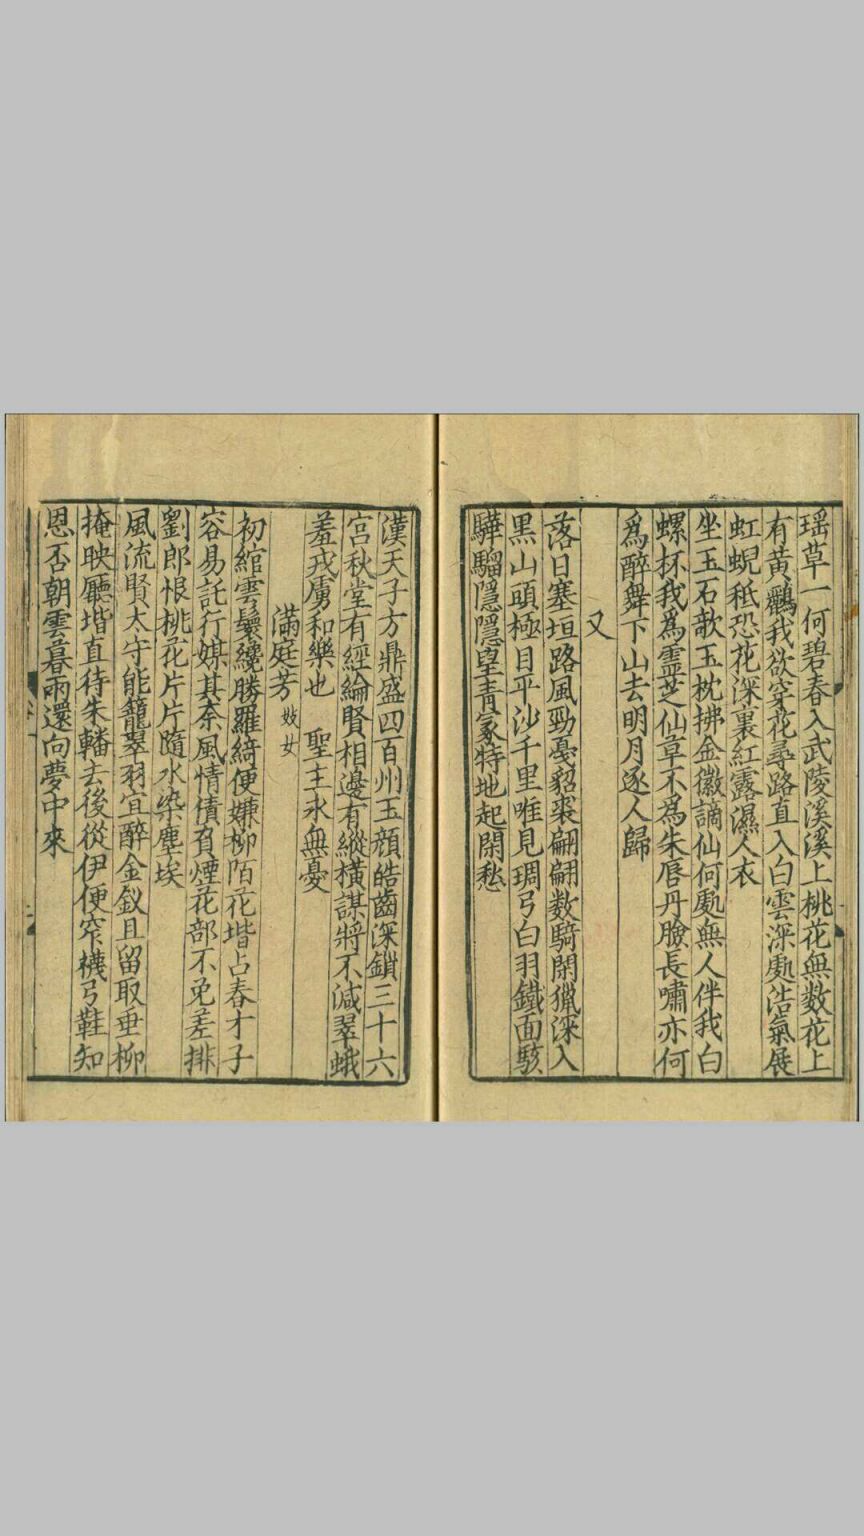 瑶草一何碧春入武陵溪溪上桃花無数花上
有黃鸝我欲穿花尋路直入白雲深處浩氣展
虹蜺秪恐花深裏紅露濕人衣
坐玉石欹玉枕拂金徽謫仙何處無人伴我白
螺杯我爲靈芝仙草不爲朱唇丹臉長嘯亦何
爲醉舞下山去明月逐人歸
又
落日塞垣路風勁戞貂裘翩翩数騎閑獵深入
黑山頭極目平沙千里唯見琱弓白羽鐵面駭
驊騮隱隱望青冢特地起閑愁
漢天子方鼎盛四百州玉顔皓齒深鎖三十六
宮秋堂有經綸賢相邊有縱橫謀將不減翠蛾
羞戎虜和樂也 聖主永無憂
滿庭芳 妓女
初綰雲鬟纔勝羅綺便嫌柳陌花堦占春才子
容易託行媒其柰風情債負煙花部不免差排
劉郎恨桃花片片隨水染塵埃
風流賢太守能籠翠羽宜醉金釵且留取垂柳
掩映廳堦直待朱轓去後從伊便窄襪弓鞋知
恩否朝雲暮雨還向夢中來